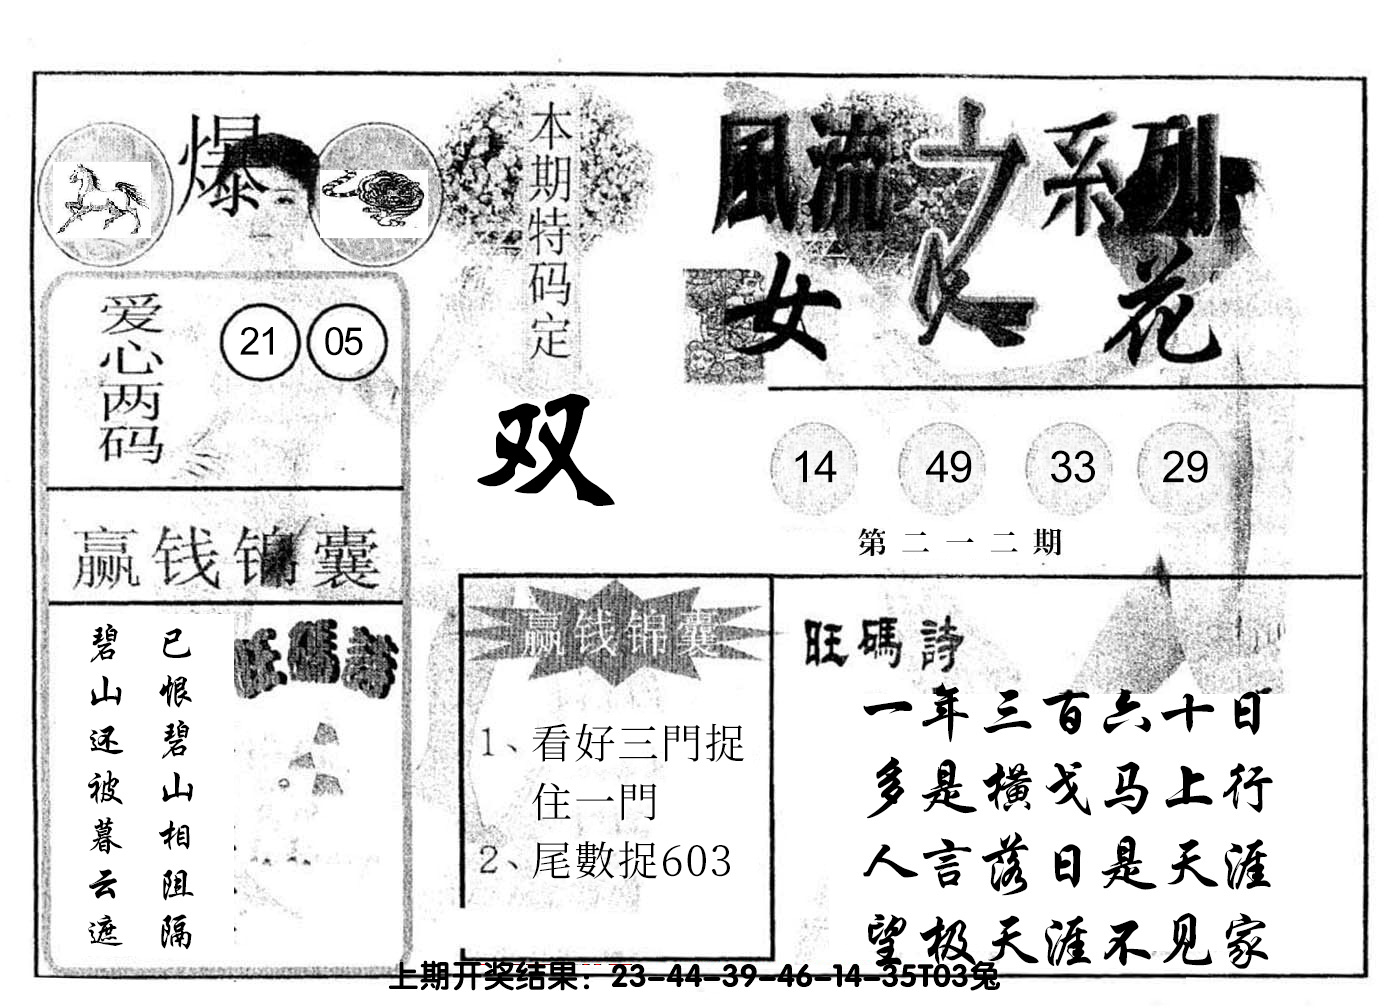 爆
本期特码定
双
風流之系列
女人花
爱心两码
21 05
14 49 33 29
第二一二期
赢钱锦囊
旺碼詩
已恨碧山相阻隔
碧山还被暮云遮
赢钱锦囊
1、看好三門捉
住一門
2、尾數捉603
旺碼詩
一年三百六十日
多是横戈马上行
人言落日是天涯
望极天涯不见家
上期开奖结果：23-44-39-46-14-35T03兔